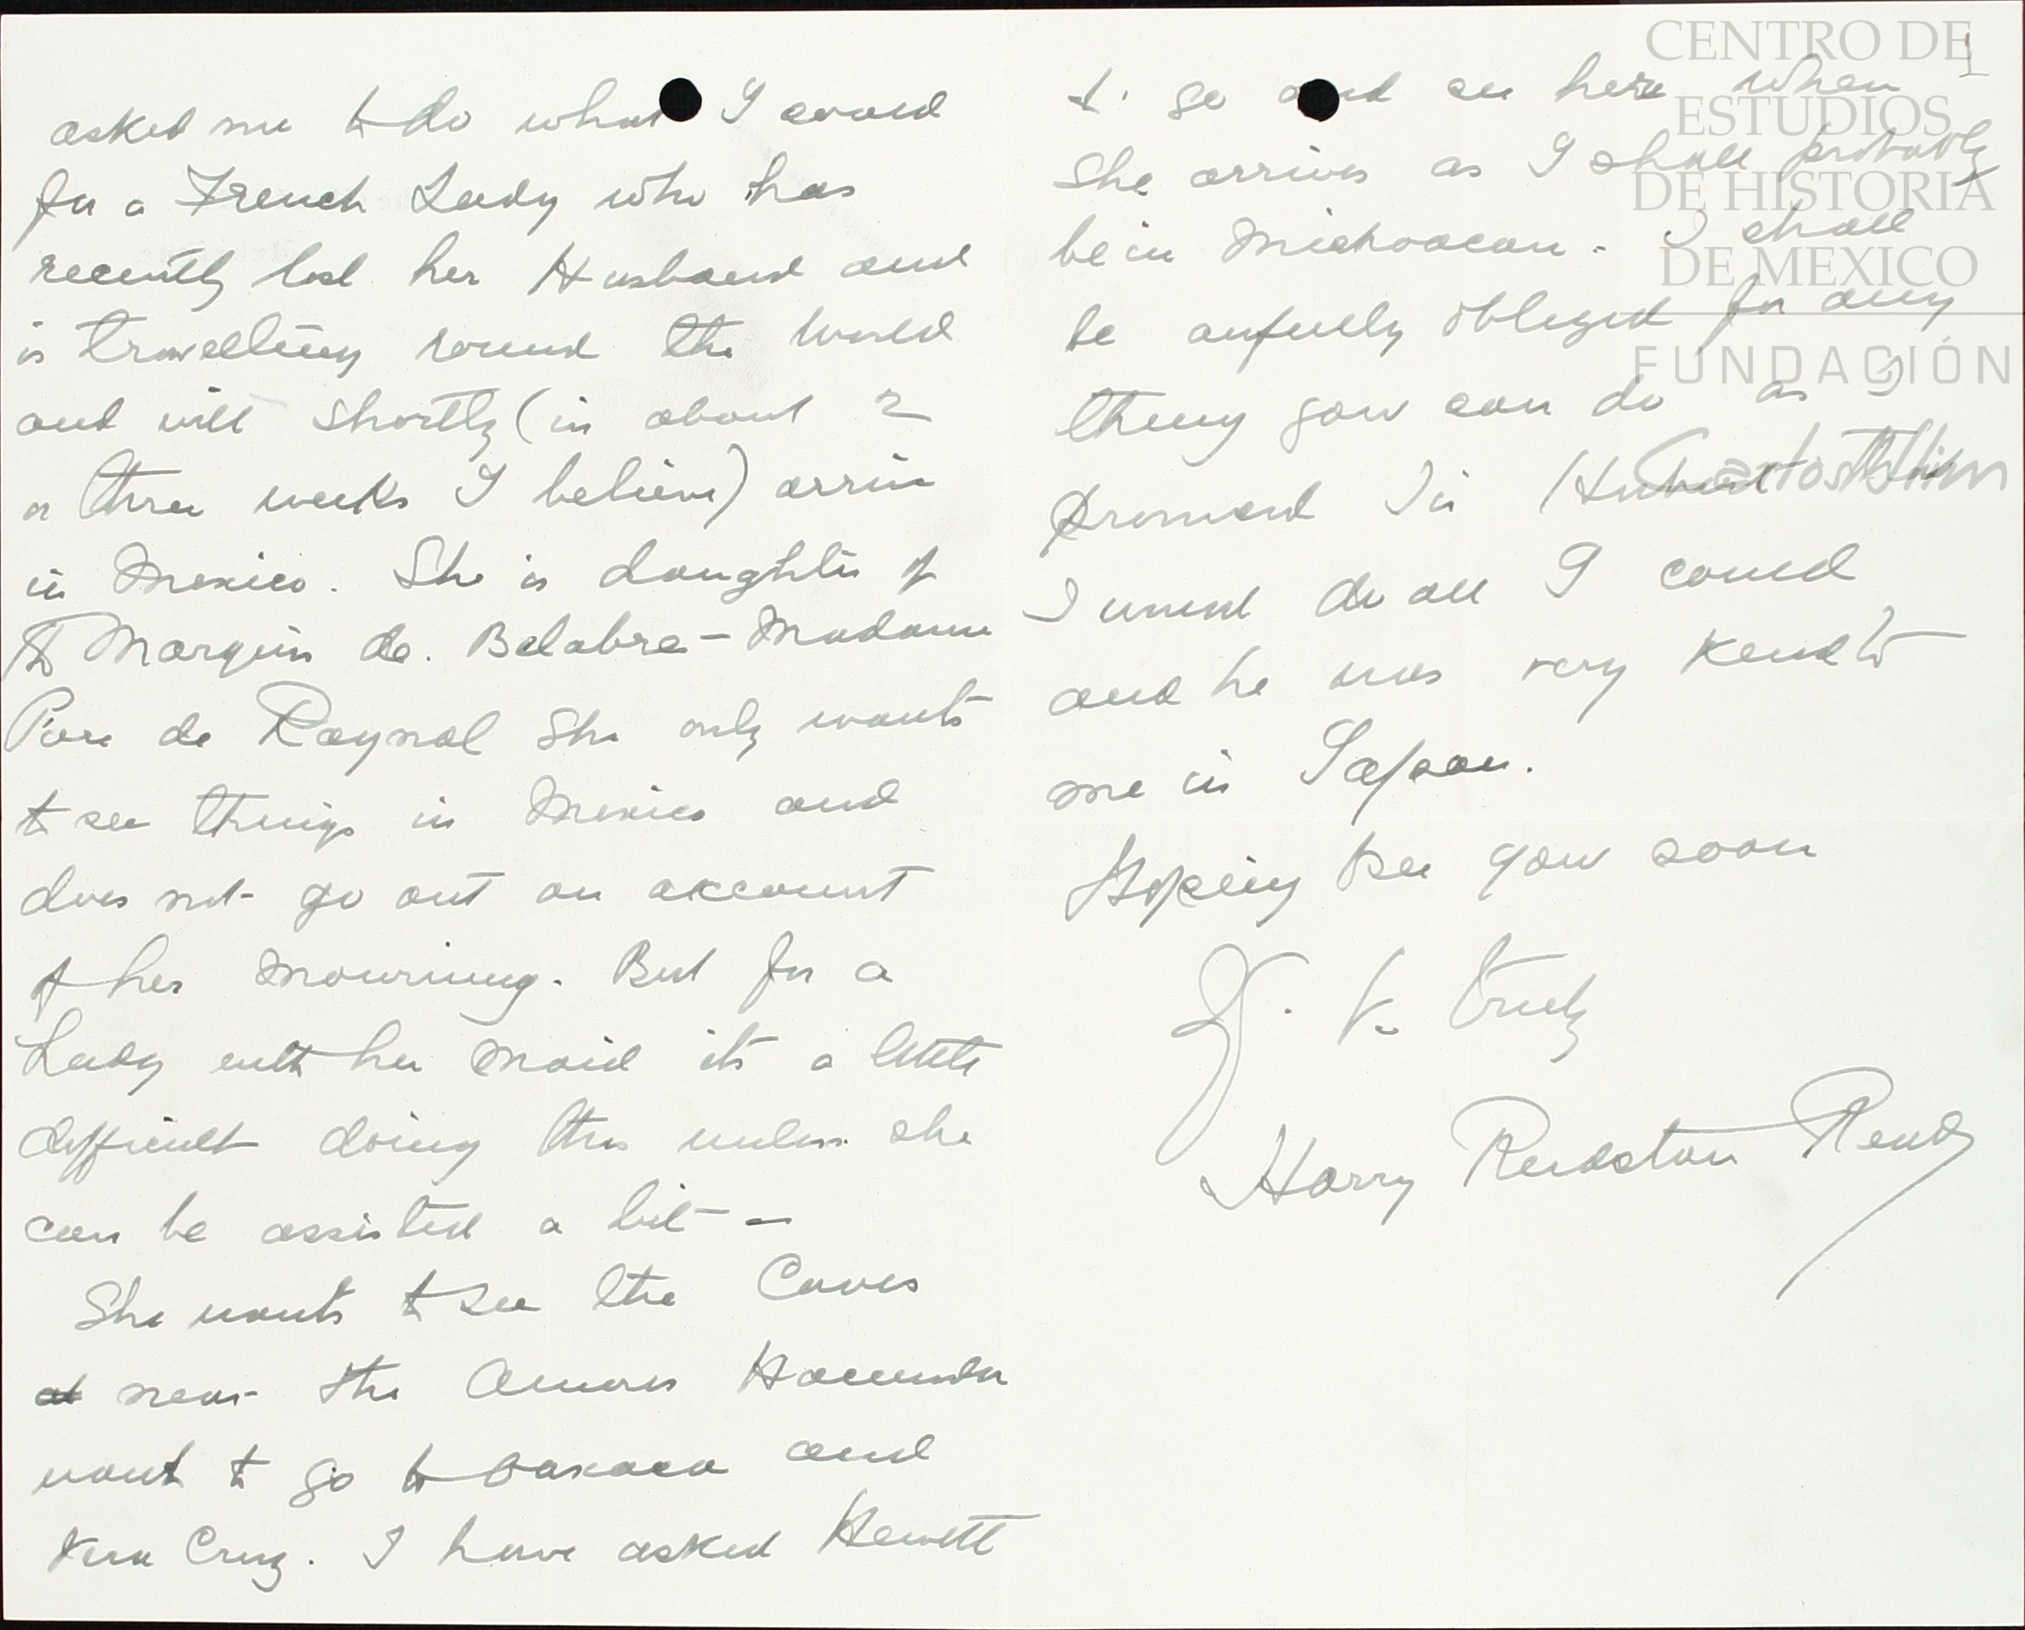 asked me to do what I could
for a French Lady who has
recently lost her Husband and
is travelling round the World
and will shortly (in about 2
or three weeks I believe) arrive
in Mexico. She is daughter of
the Marquis de Belabre - Madame
de Raynal She only wants
to see things in Mexico and
does not go out on account
of her mourning. But for a
Lady with her maid its a little
difficult doing this unless she
can be assisted a bit -
She wants to see the Caves
near the Hacienda
want to go to Oaxaca and
Vera Cruz. I have asked Hewett
to go and see here when
She arrives as I shall probably
be in Michoacan - I shall
be awfully obliged for any
thing you can do as I
promised Sir
I would do all I could
and he was very kind to
me in Japan.
Hoping to see you soon
Y. V. truly
Harry
1
CENTRO DE
ESTUDIOS
DE HISTORIA
DE MEXICO
FUNDACIÓN
Carlos Slim